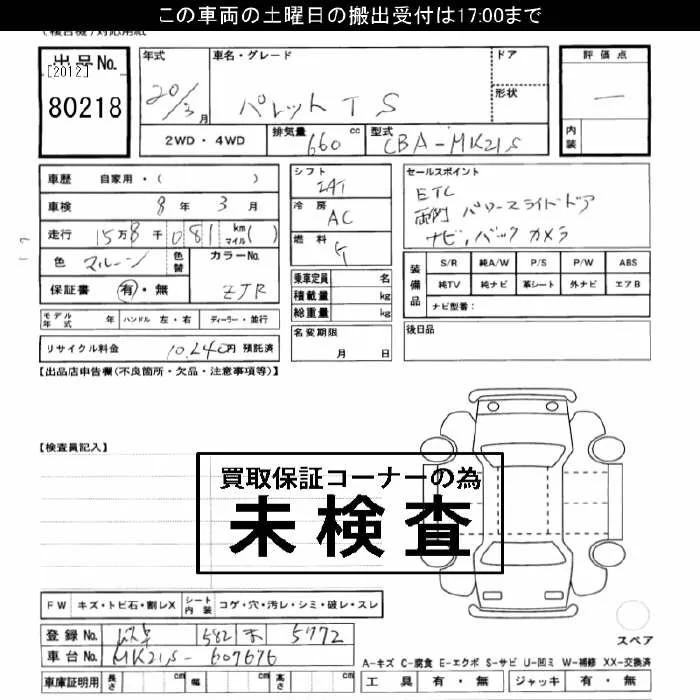 この車両の土曜日の搬出受付は17:00まで
出品No.
[2012]
80218
年式 20/3月
車名・グレード パレット TS
ドア
形状
評価点 —
内装
2WD・4WD
排気量 660 cc
型式 CBA-MK21S
車歴 自家用・( )
車検 8年 3月
走行 15万8千081 km マイル( )
色 マルーン 色替
カラーNo. ZJR
保証書 有・無
シフト IAT
冷房 AC
燃料 G
乗車定員 名
積載量 kg
総重量 kg
名変期限 月 日
セールスポイント
ETC
両側パワースライドドア
ナビ,バックカメラ
装備品
S/R 純A/W P/S P/W ABS
純TV 純ナビ 革シート 外ナビ エアB
ナビ型番:
モデル年式 年 ハンドル 左・右 ディーラー・並行
後日品
リサイクル料金 10,240円 預託済
【出品店申告欄(不良箇所・欠品・注意事項等)】
【検査員記入】
買取保証コーナーの為
未検査
FW キズ・トビ石・割レX シート内装 コゲ・穴・汚レ・シミ・破レ・スレ
登録No. 582 5772
車台No. MK21S-607676
車庫証明用 長さ cm 幅 cm 高さ cm
スペア
A-キズ C-腐食 E-エクボ S-サビ U-凹ミ W-補修 XX-交換済
工具 有・無 ジャッキ 有・無